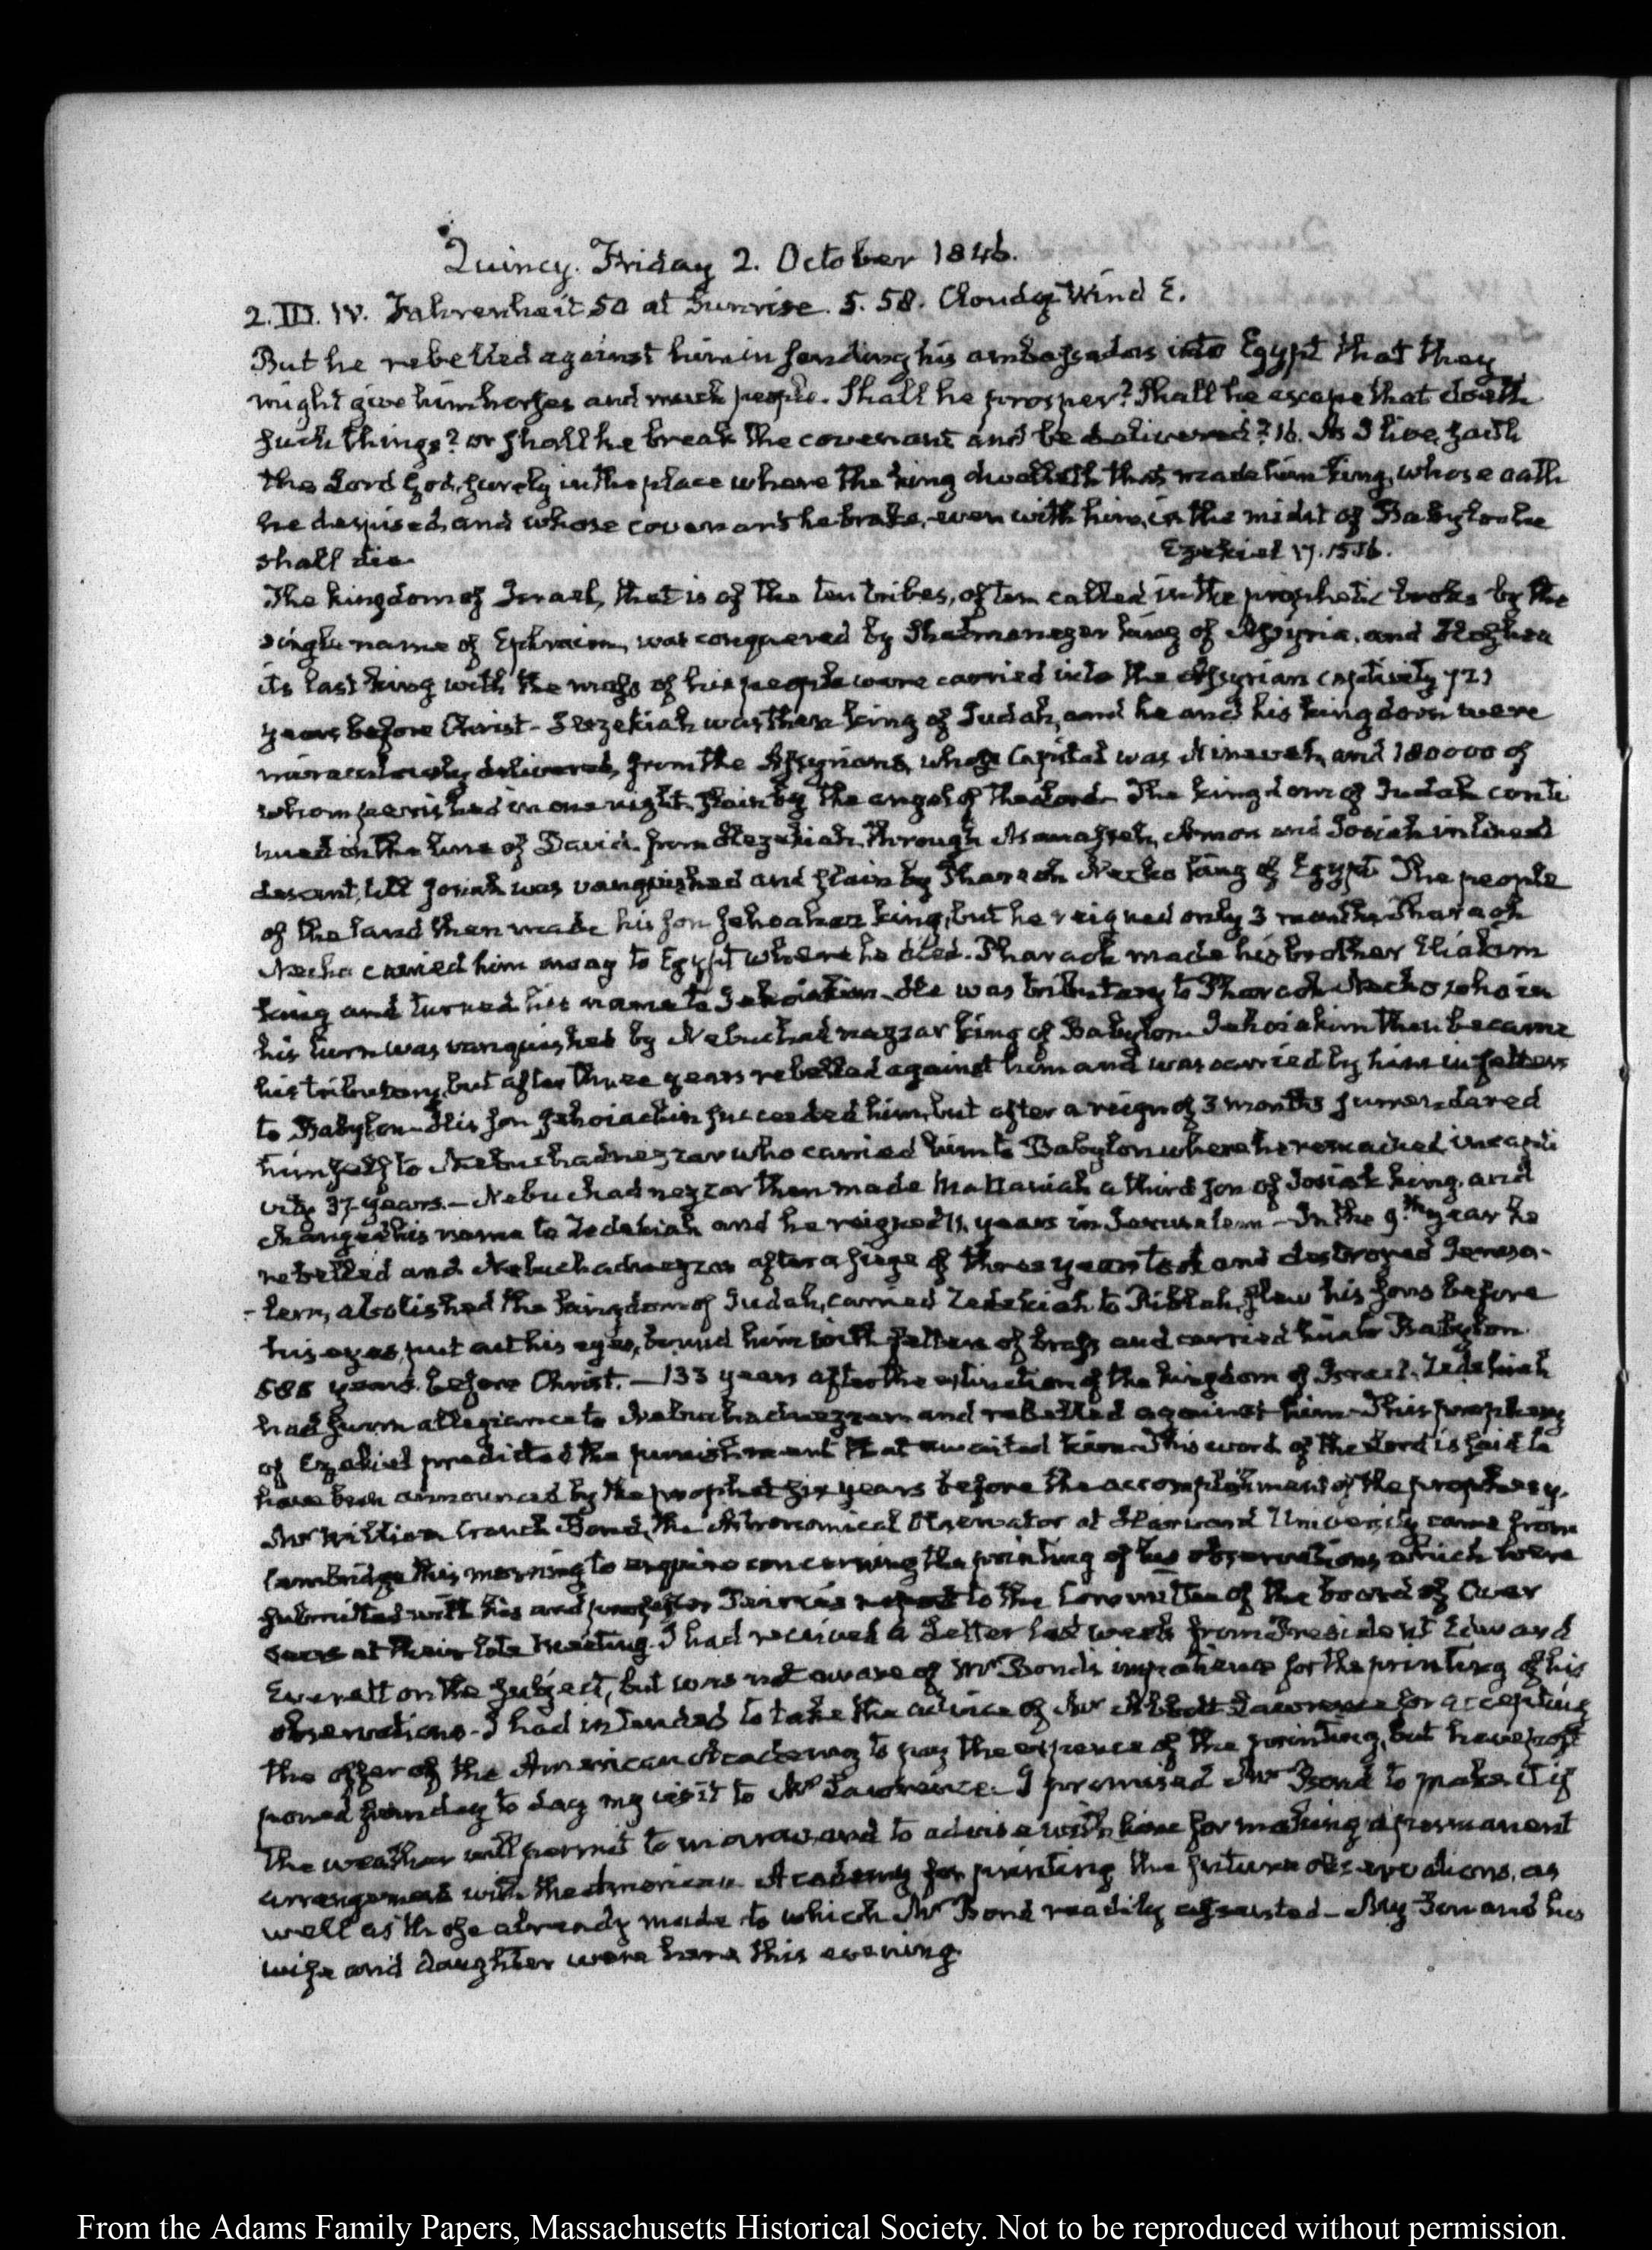 Quincy. Friday 2. October 1846.
2. III. IV. Fahrenheit 50 at Sunrise. 5. 58. Cloudy Wind E.
But he rebelled against him in sending his ambassadors into Egypt that they
might give him horses and much people. Shall he prosper? Shall he escape that doeth
such things? or shall he break the covenant and be delivered? 16. As I live, saith
the Lord God, surely in the place where the king dwelleth that made him king, whose oath
he despised, and whose covenant he brake, even with him, in the midst of Babylon he
shall die. Ezekiel 17. 15.16.
The kingdom of Israel, that is of the ten tribes, often called in the prophetic books by the
single name of Ephraim, was conquered by Shalmanezer king of Assyria, and Hoshea
its last king with the mass of his people were carried into the Assyrian captivity 721
years before Christ - Hezekiah was then king of Judah, and he and his kingdom were
miraculously delivered, from the Assyrians, whose Capital was Nineveh, and 180000 of
whom perished in one night slain by the angel of the Lord. The kingdom of Judah conti
nued in the line of David from Hezekiah, through Manasseh, Amon and Josiah in lineal
descent, till Josiah was vanquished and slain by Pharaoh Necho king of Egypt. The people
of the land then made his son Jehoahaz king, but he reigned only 3 months. Pharaoh
Necho carried him away to Egypt where he died. Pharaoh made his brother Eliakim
king and turned his name to Jehoiakim. He was tributary to Pharaoh Necho, who in
his turn was vanquished by Nebuchadnezzar king of Babylon. Jehoiakim then became
his tributary, but after three years rebelled against him and was carried by him in fetters
to Babylon - His son Jehoiachin succeeded him, but after a reign of 3 months surrendered
himself to Nebuchadnezzar who carried him to Babylon where he remained in capti
vity 37 years. - Nebuchadnezzar then made Mattaniah a third son of Josiah king, and
changed his name to Zedekiah and he reigned 11 years in Jerusalem - In the 9th year he
rebelled and Nebuchadnezzar after a siege of three years took and destroyed Jerusa-
-lem, abolished the kingdom of Judah, carried Zedekiah to Riblah, slew his sons before
his eyes, put out his eyes, bound him with fetters of brass and carried him to Babylon
588 years before Christ. - 133 years after the extinction of the kingdom of Israel. Zedekiah
had sworn allegiance to Nebuchadnezzar and rebelled against him - This prophecy
of Ezekiel predicted the punishment that awaited him. This word of the Lord is said to
have been announced by the prophet six years before the accomplishment of the prophesy.
Mr William Cranch Bond, the Astronomical Observator at Harvard University came from
Cambridge this morning to enquire concerning the printing of his observations, which were
submitted with his and professor Peirce's report to the Committee of the board of Over
seers at their late meeting. I had received a Letter last week from President Edward
Everett on the subject, but was not aware of Mr Bond's impatience for the printing of his
observations - I had intended to take the advice of Mr Abbott Lawrence for accepting
the offer of the American Academy to pay the expence of the printing, but have post
poned from day to day my visit to Mr Lawrence. I promised Mr Bond to make it if
the weather will permit to morrow, and to advise with him for making a permanent
arrangement with the American Academy for printing the future observations, as
well as those already made to which Mr Bond readily assented - My Son and his
wife and daughter were here this evening.
From the Adams Family Papers, Massachusetts Historical Society. Not to be reproduced without permission.